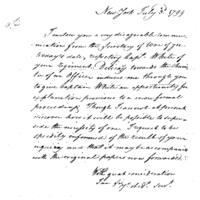 New York July 3d. 1799
Sir
I inclose you a very disagreable commu-
nication from the Secretary of War of yes-
terday's date, respecting Capt. White of
your regiment. Delicacy towards the 
of an Officer induces me through you
to give Captain White an opportunity for
explanation previous to a more formal
proceeding. Though I cannot at present
discover how it will be possible to super-
sede the necessity of one. I request to be
speedily informed of the result of your
inquiry and that it may be accompanied
with the original papers now forwarded.
With great consideration
I am Sir yr. obt. Servt.